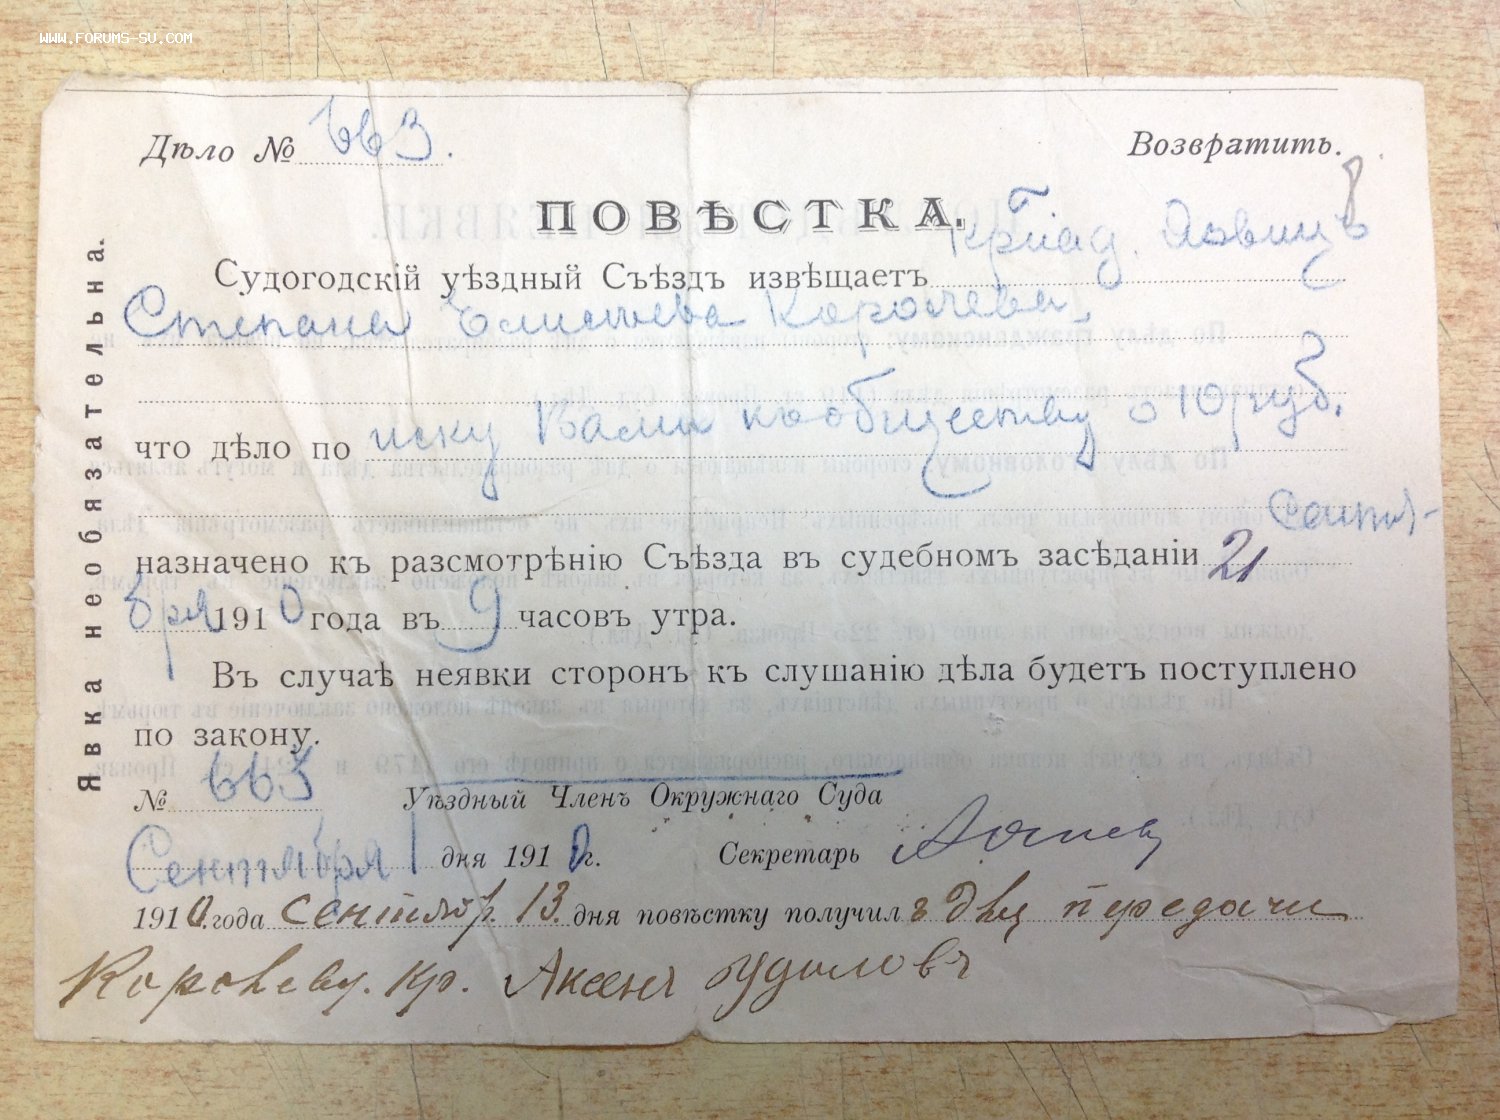 WWW.FORUMS-SU.COM
Дѣло № 663.
Возвратить.
ПОВѢСТКА.
Судогодскій уѣздный Съѣздъ извѣщаетъ
Степана Елисѣева Королева,
что дѣло по иску Вами къ обществу о 10 руб.
Сентя-
назначено къ разсмотрѣнію Съѣзда въ судебномъ засѣданіи 21
бря 1910 года въ 9 часовъ утра.
Въ случаѣ неявки сторонъ къ слушанію дѣла будетъ поступлено
по закону.
№ 663 Уѣздный Членъ Окружнаго Суда
Сентября 1 дня 1910 г. Секретарь
1910 года сентябр. 13 дня повѣстку получил для передачи
Королеву. кр. Аксенъ Удаловъ
Явка необязательна.